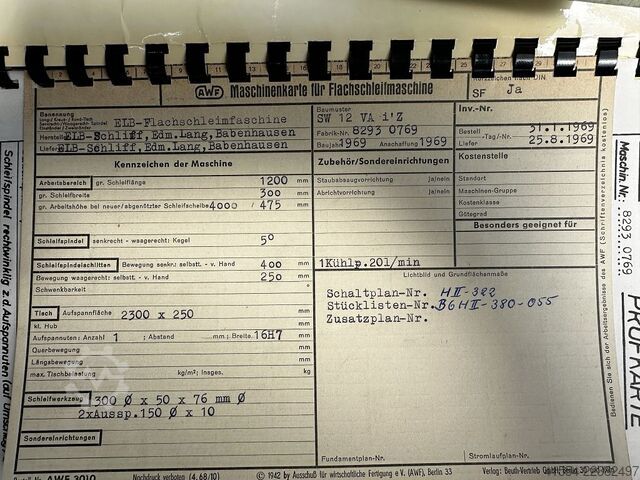 AWF Maschinenkarte für Flachschleifmaschine
Herzeichen nach DIN
SF Ja
Benennung
ELB-Flachschleimfaschine
Hersteller ELB-Schliff, Edm.Lang, Babenhausen
Liefer ELB-Schliff, Edm.Lang, Babenhausen
Baumuster
SW 12 VA i'Z
Fabrik-Nr. 8293 0769
Baujahr 1969 Anschaffung 1969
Inv.-Nr.
Bestell 31.1.1969
-Tag/-Nr.
Liefer 25.8.1969
Kennzeichen der Maschine
Arbeitsbereich gr. Schleiflänge 1200 mm
gr. Schleifbreite 300 mm
gr. Arbeitshöhe bei neuer/abgenützter Schleifscheibe 4000 / 475 mm
Schleifspindel senkrecht - waagerecht: Kegel 5°
Schleifspindelschlitten Bewegung senkr.: selbstt. - v. Hand 400 mm
Bewegung waagerecht: selbstt. - v. Hand 250 mm
Schwenkbarkeit °
Tisch Aufspannfläche 2300 x 250 mm
kl. Hub mm
Aufspannuten: Anzahl 1 ; Abstand mm; Breite 16H7 mm
Querbewegung mm
Längsbewegung mm
max. Tischbelastung kg/m²; insges. kg
Schleifwerkzeug 300 Ø x 50 x 76 mm Ø
2xAussp.150 Ø x 10
Sondereinrichtungen
Zubehör/Sondereinrichtungen
Staubabsaugvorrichtung ja|nein
Abrichtvorrichtung ja|nein
1Kühlp.20l/min
Kostenstelle
Standort
Maschinen-Gruppe
Kostenklasse
Gütegrad
Besonders geeignet für
Lichtbild und Grundflächenmaße
Schaltplan-Nr. HII-322
Stücklisten-Nr. B6HII-380-055
Zusatzplan-Nr.
Fundamentplan-Nr. Stromlaufplan-Nr.
AWF 3010 Nachdruck verboten (4.68/10) © 1942 by Ausschuß für wirtschaftliche Fertigung e V. (AWF), Berlin 33 Verlag: Beuth-Vertrieb GmbH, Berlin 30
Bedienen Sie sich der Arbeitsergebnisse des AWF (Schriftenverzeichnis kostenlos)
Maschin Nr.: 8293 0769
PRÜFKARTE
Schleifspindel rechtwinklig z.d. Aufspannuten (auf Umschlag